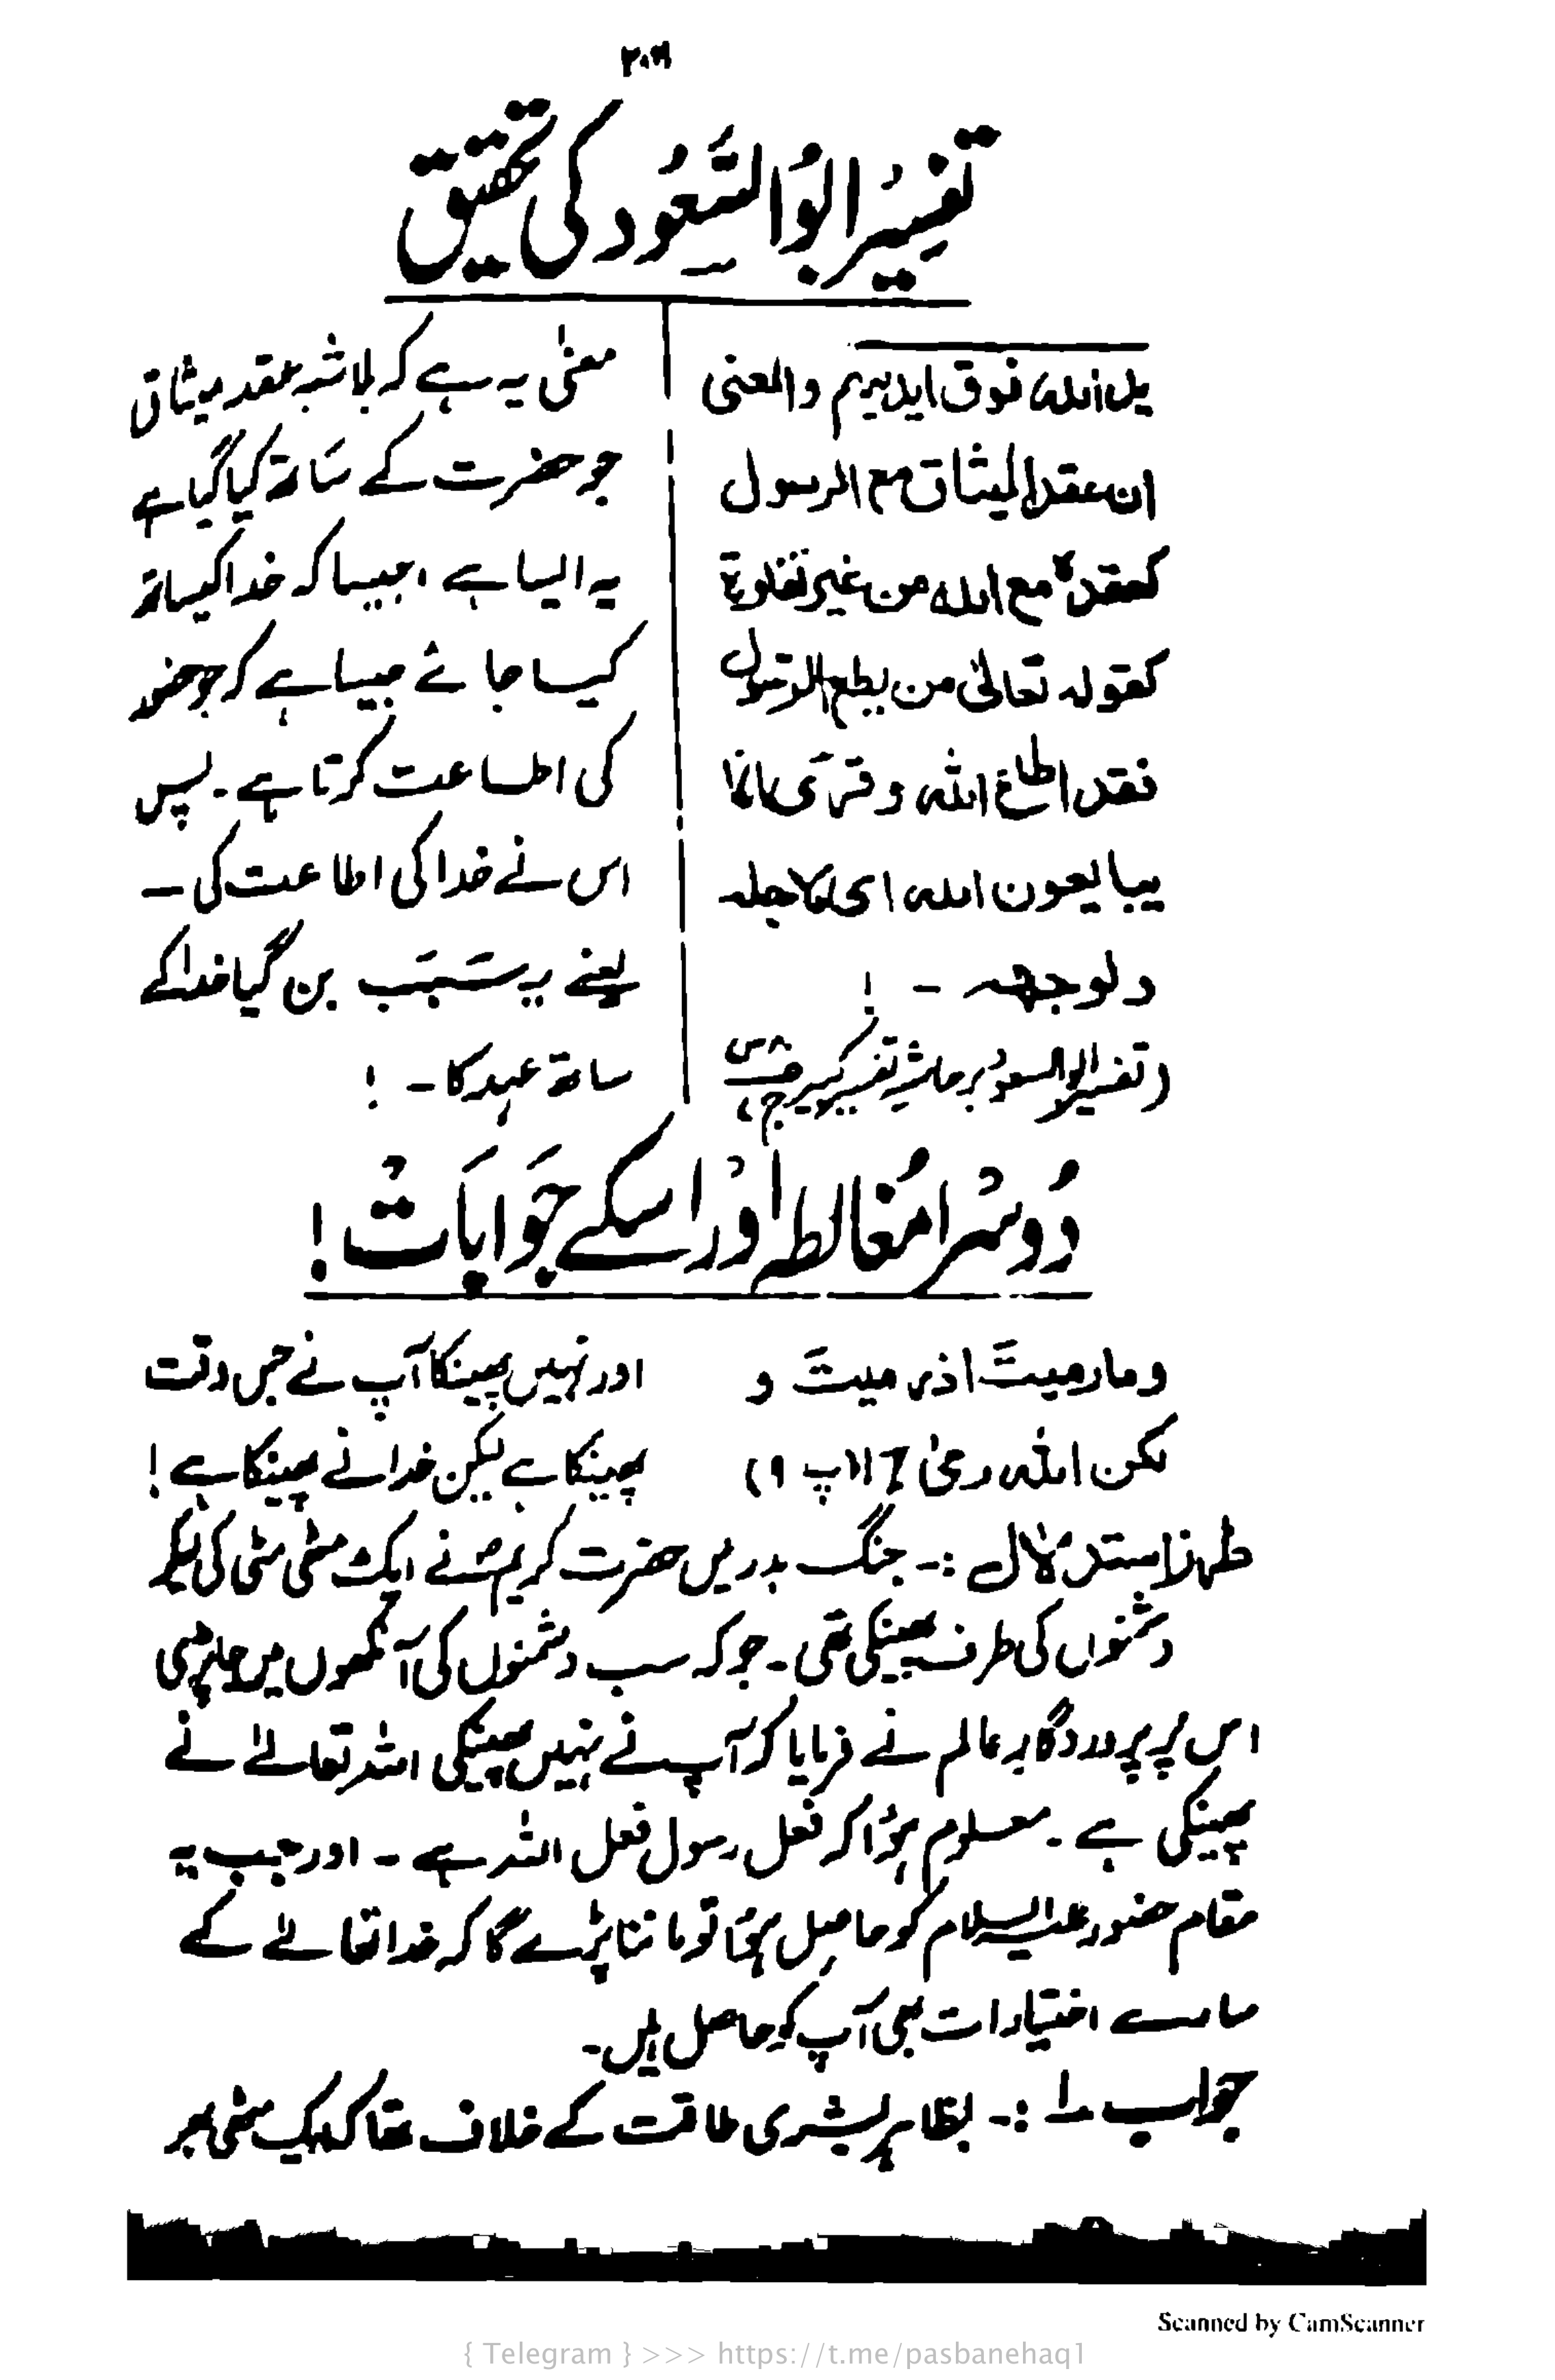 ۲۰۹
تفسیر ابوالسعود کی تحقیق
ید اللہ فوق ایدیہم والمعنی
ان عقد المیثاق مع الرسول
کعقدہ مع اللہ من غیر تفاوت
کقولہ تعالیٰ من یطع الرسول
فقد اطاع اللہ وقری انما
یبایعون اللہ ای لاجلہ
ولوجہہ - !
(تفسیر ابوالسعود بر حاشیہ تفسیر کبیر
معنیٰ یہ ہے کہ بلا شبہ عقد میثاق
جو حضرت کے ساتھ کیا گیا ہے
یہ ایسا ہے، جیسا کہ خدا کیساتھ
کیسا جائے جیسا ہے کہ جو حضور
کی اطاعت کرتا ہے۔ پس
اس نے خدا کی اطاعت کی ــ
یعنے یہ سبب بن گیا خدا کے
ساتھ عہد کا - !
دوسرا مغالطہ اور اسکے جوابات !
وما رمیت اذ رمیت و
لکن اللہ رمیٰ (پ ۹)
اور نہیں پھینکا آپ نے جس وقت
پھینکا ہے لیکن خدا نے پھینکا ہے !
طرز استدلال :- جنگ بدر میں حضرت کریمؐ نے ایک مٹھی مٹی کی لیکر
دشمنوں کی طرف پھینکی تھی۔ جو کہ سب دشمنوں کی آنکھوں میں جا پڑی
اس پر پروردگار عالم نے فرمایا کہ آپ نے نہیں پھینکی اللہ تعالےٰ نے
پھینکی ہے۔ معلوم ہؤا کہ فعل رسول فعل اللہ ہے - اور جب یہ
مقام حضور علیہ السلام کو حاصل ہؤا تو ماننا پڑے گا کہ خدا تعالےٰ کے
سارے اختیارات بھی آپ کو حاصل ہیں۔
جواب ۱ :- بظاہر بشری طاقت کے خلاف تھا کہ ایک مٹھی بھر
Scanned by CamScanner
{ Telegram } >>> https://t.me/pasbanehaq1